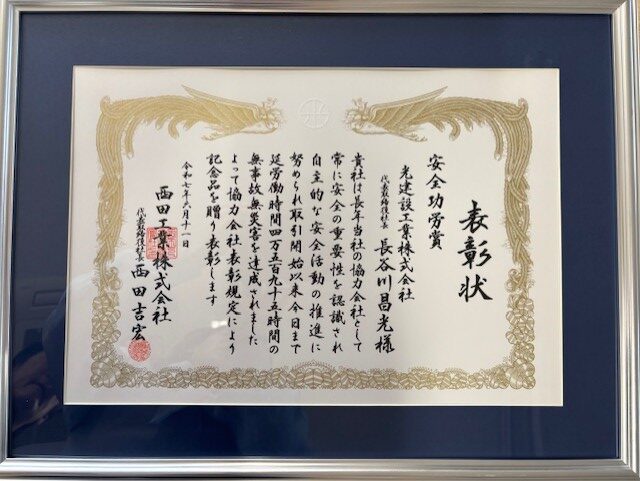 表彰状
安全功労賞
光建設工業株式会社
代表取締役社長 長谷川昌光様
貴社は長年当社の協力会社として
常に安全の重要性を認識され
自主的な安全活動の推進に
努められ取引開始以来今日まで
延労働時間四万五百九十五時間の
無事故無災害を達成されました
よって協力会社表彰規定により
記念品を贈り表彰します
令和七年六月十一日
西田工業株式会社
代表取締役社長 西田吉宏